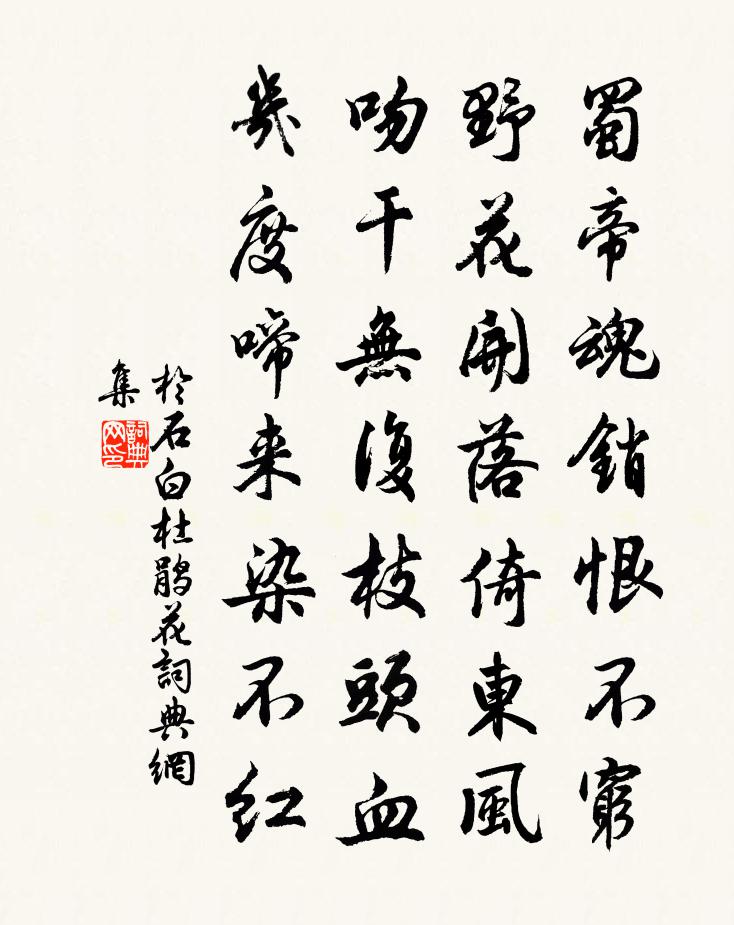 蜀帝魂銷恨不窮
野花開落倚東風
吻干無復枝頭血
幾度啼来染不紅
於石白杜鹃花詞典網
集
詞典
网印